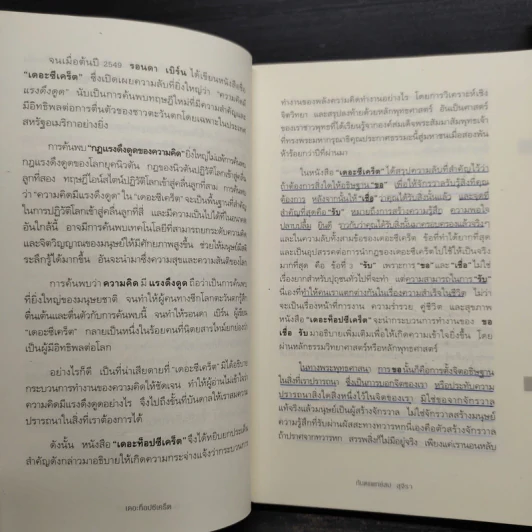 จนเมื่อต้นปี 2549 รอนดา เบิร์น ได้เขียนหนังสือชื่อ
"เดอะซีเคร็ต" ซึ่งเปิดเผยความลับที่ยิ่งใหญ่ว่า "ความคิดมี
แรงดึงดูด" นับเป็นการค้นพบทฤษฎีใหม่ที่มีความสำคัญและ
มีอิทธิพลต่อการตื่นตัวของชาวตะวันตกโดยเฉพาะในประเทศ
สหรัฐอเมริกาอย่างยิ่ง
การค้นพบ "กฎแรงดึงดูดของความคิด" ยิ่งใหญ่ไม่แพ้การค้นพบ
กฎแรงดึงดูดของโลกยุคนิวตัน กฎของนิวตันปฏิวัติโลกเข้าสู่คลื่น
ลูกที่สอง ทฤษฎีไอน์สไตน์ปฏิวัติโลกเข้าสู่คลื่นลูกที่สาม การค้นพบ
ว่า "ความคิดมีแรงดึงดูด" ใน "เดอะซีเคร็ต" จะเป็นพื้นฐานที่สำคัญ
ในการปฏิวัติโลกเข้าสู่คลื่นลูกที่สี่ และมีความเป็นไปได้ที่ในอนาคต
อันใกล้นี้ อาจมีการค้นพบเทคโนโลยีที่สามารถยกระดับความคิด
และจิตวิญญาณของมนุษย์ให้มีศักยภาพสูงขึ้น ช่วยให้มนุษย์มี
ระลึกรู้ได้มากขึ้น อันจะนำมาซึ่งความสุขและความสันติของโลก
การค้นพบว่า ความคิด มี แรงดึงดูด ถือว่าเป็นการค้นพบ
ที่ยิ่งใหญ่ของมนุษยชาติ จนทำให้ผู้คนทางซีกโลกตะวันตกรู้สึก
ตื่นเต้นและตื่นตัวกับการค้นพบนี้ จนทำให้รอนดา เบิร์น ผู้เขียน
"เดอะซีเคร็ต" กลายเป็นหนึ่งในร้อยคนที่นิตยสารไทม์ยกย่องว่า
เป็นผู้มีอิทธิพลต่อโลก
อย่างไรก็ดี เป็นที่น่าเสียดายที่ "เดอะซีเคร็ต" มิได้อธิบาย
กระบวนการทำงานของความคิดให้ชัดเจน ทำให้ผู้อ่านไม่เข้าใจ
ความคิดมีแรงดึงดูดอย่างไร จึงไปถึงขั้นที่บันดาลให้เราสม
ปรารถนาในสิ่งที่เราต้องการได้
ดังนั้น หนังสือ "เดอะท็อปซีเคร็ต" จึงได้หยิบยกประเด็น
สำคัญดังกล่าวมาอธิบายให้เกิดความกระจ่างแจ้งว่ากระบวนการ
เดอะท็อปซีเคร็ต
ทำงานของพลังความคิดทำงานอย่างไร โดยการวิเคราะห์เชิง
จิตวิทยา และสรุปลงท้ายด้วยหลักพุทธศาสตร์ อันเป็นศาสตร์
ของเราชาวพุทธที่ได้เรียนรู้จากองค์สมเด็จพระสัมมาสัมพุทธเจ้า
ที่ทรงพระมหากรุณาธิคุณประกาศธรรมะนี้สู่มหาชนเมื่อสองพัน
ห้าร้อยกว่าปีที่ผ่านมา
ในหนังสือ "เดอะซีเคร็ต" ได้สรุปความลับที่สำคัญไว้ว่า
ถ้าต้องการสิ่งใดให้อธิษฐาน "ขอ" เพื่อให้จักรวาลรู้สิ่งที่คุณ
ต้องการ หลังจากนั้นให้ "เชื่อ" ว่าคุณได้รับสิ่งนั้นแล้ว และจุดที่
สำคัญที่สุดคือ "รับ" หมายถึงการสร้างความรู้สึก ความพอใจ
ปลาบปลื้ม ยินดี ราวกับว่าคุณได้รับสิ่งนั้นมาครอบครองแล้วจริงๆ
และในความลับทั้งสามข้อของเดอะซีเคร็ต ข้อที่ทำได้ยากที่สุด
และเป็นอุปสรรคต่อการนำกฎของเดอะซีเคร็ตไปใช้ให้เป็นจริง
มากที่สุด คือ ข้อที่ 3 "รับ" เพราะการ "ขอ" และ "เชื่อ" ไม่ใช่
เรื่องยากสำหรับปุถุชนทั่วไปที่จะทำ แต่ความสามารถในการ "รับ"
นี่เองที่ทำให้คนเราแตกต่างกันในเรื่องความสำเร็จในชีวิต ไม่ว่า
จะเป็นเรื่องหน้าที่การงาน ความร่ำรวย คู่ชีวิต และสุขภาพ
หนังสือ "เดอะท็อปซีเคร็ต" จะนำกระบวนการทำงานของ ขอ
เชื่อ รับ มาอธิบายเพิ่มเติมเพื่อให้เกิดความเข้าใจยิ่งขึ้น โดย
ผ่านหลักธรรมวิทยาศาสตร์หรือหลักพุทธศาสตร์
ในทางพระพุทธศาสนา การขอนั้นก็คือการตั้งจิตอธิษฐาน
ในสิ่งที่เราปรารถนา ซึ่งเป็นการบอกจิตของเรา หรือประทับความ
ปรารถนาสิ่งใดสิ่งหนึ่งไว้ในจิตของเรา มิใช่ขอจากจักรวาล
แท้จริงแล้วมนุษย์เป็นผู้สร้างจักรวาล ไม่ใช่จักรวาลสร้างมนุษย์
ความรู้สึกที่รับผ่านผัสสะทางทวารหกนี่เองคือตัวสร้างจักรวาล
ถ้าปราศจากทวารหก สรรพสิ่งก็ไม่มีอยู่จริง เพียงแค่เรานอนหลับ
ทันตแพทย์สม สุจีรา